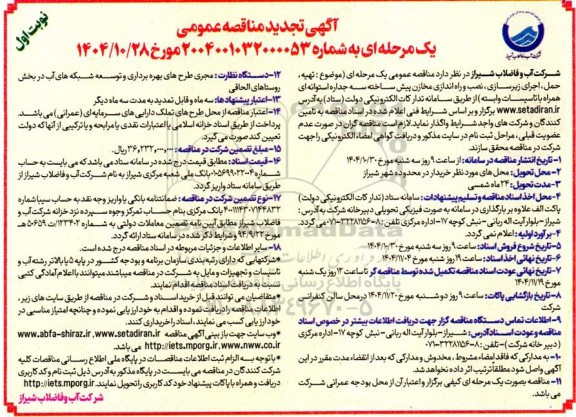 نوبت اول
آگهی تجدید مناقصه عمومی
یک مرحله ای به شماره 2004001032000053 مورخ 1404/10/28
شرکت آب و فاضلاب شیراز در نظر دارد مناقصه عمومی یک مرحله ای (موضوع : تهیه،
حمل، اجرای زیرسازی، نصب و راه اندازی مخازن پیش ساخته سه جداره استوانه ای
همراه با تاسیسات وابسته) از طریق سامانه تدارکات الکترونیکی دولت (ستاد) به آدرس
www.setadiran.ir برگزار و بر اساس شرایط فنی اعلام شده در اسناد مناقصه به تامین
کنندگان و شرکت های واجد شرایط واگذار نماید. لازم است مناقصه گران در صورت عدم
عضویت قبلی، مراحل ثبت نام در سایت مذکور و دریافت گواهی امضاء الکترونیکی را جهت
شرکت در مناقصه محقق سازند.
1- تاریخ انتشار مناقصه در سامانه : از ساعت 9 روز سه شنبه مورخ 1404/10/30
2- محل تحویل: محل های مورد نظر خریدار در محدوده شهر شیراز
3- مدت تحویل: 24 ماه شمسی
4- محل اخذ اسناد مناقصه و تسلیم پیشنهادات : سامانه ستاد (تدارکات الکترونیکی دولت)
پاکت الف علاوه بر بارگذاری در سامانه به صورت فیزیکی تحویلی دبیرخانه شرکت به آدرس :
شیراز-بلوار آیت اله ربانی- نبش کوچه 17-اداره مرکزی تلفن: 8-07132281156 می گردد.
4- برآورد اولیه : اعلام نمی گردد.
5- تاریخ شروع فروش اسناد: ساعت 9 روز سه شنبه مورخ 1404/10/30
6- تاریخ نهائی اخذ اسناد: ساعت 19 روز شنبه مورخ 1404/11/04
7- تاریخ نهائی عودت اسناد مناقصه تکمیل شده توسط مناقصه گر تا ساعت 13 روز یک شنبه
مورخ 1404/11/19
8- تاریخ بازگشایی پاکات : ساعت 9 روز دوشنبه مورخ 1404/11/20 در محل سالن کنفرانس
شرکت
9- اطلاعات تماس دستگاه مناقصه گزار جهت دریافت اطلاعات بیشتر در خصوص اسناد
مناقصه و عودت اسناد آدرس : شیراز- بلوار آیت اله ربانی- نبش کوچه 17-اداره مرکزی
(دبیر خانه شرکت)- تلفن : 8-07132281156
10- به مدارکی که فاقد امضاء مشروط، مخدوش و مدارکی که بعد از انقضاء مدت مقرر در این
آگهی واصل شود مطلقا ترتیب اثر داده نخواهد شد.
11- مناقصه بصورت یک مرحله ای کیفی برگزار و اعتبار آن از محل بودجه عمرانی شرکت
می باشد.
12- دستگاه نظارت: مجری طرح های بهره برداری و توسعه شبکه های آب در بخش
روستاهای الحاقی
13- اعتبار پیشنهادها: سه ماه و قابل تمدید به مدت سه ماه دیگر
14- اعتبار مناقصه از محل طرح های تملک دارایی های سرمایه ای (عمرانی) می باشد.
پرداخت از طریق اسناد خزانه اسلامی یا اعتبارات نقدی یا مرابحه و یا ترکیبی از آنها که دولت
تعیین کند صورت می گیرد.
15- مبلغ تضمین شرکت در مناقصه :
16- قیمت اسناد : مطابق قیمت درج شده در سامانه ستاد می باشد که می بایست به حساب
بانک ملی شعبه مرکزی شیراز به نام شرکت آب و فاضلاب شیراز از
طریق سامانه ستاد واریز گردد.
17- نوع تضمین شرکت در مناقصه : ضمانتنامه بانکی یا واریز وجه نقد به حساب سیبا شماره
بانک مرکزی بنام حساب تمرکز وجوه سپرده نزد خزانه شرکت آب و
فاضلاب شیراز مطابق آیین نامه تضمین معاملات دولتی به شماره
و شرایط ذکر شده در سامانه ستاد ارائه گردد.
18- سایر اطلاعات و جزئیات مربوطه در اسناد مناقصه درج شده است.
*شرکتهایی که دارای رتبه بندی سازمان برنامه و بودجه کشور در پایه 5 یا بالاتر رشته آب و
تاسیسات و تجهیزات و مایل به شرکت در مناقصه میباشند میتوانند با اعلام آمادگی کتبی
نسبت به دریافت اسناد مناقصه اقدام نمایند.
*متقاضیان می توانند قبل از خرید اسناد و شرکت در مناقصه از طریق سایت های زیر،
اطلاعات مناقصه را دریافت نموده و اقدام به خود ارزیابی نموده و چنانچه امتیاز مناسبی در
خود ارزیابی کسب می نمایند، اسناد را خریداری کنند.
*وب سایت جهت باز بینی آگهی مناقصه www.abfa-shiraz.ir, www.setadiran.ir
http://iets.mporg.ir, www.nww.co.ir می باشد.
*با توجه به الزام ثبت اطلاعات مناقصات در پایگاه ملی اطلاع رسانی مناقصات کلیه
شرکت کنندگان در مناقصه می بایست در پایگاه مذکور به آدرس ذیل ثبت نام و کد کاربری
دریافت و همراه با پاکات پیشنهاد خود کد کاربری را تحویل نمایند. http://iets.mporg.ir
شرکت آب و فاضلاب شیراز